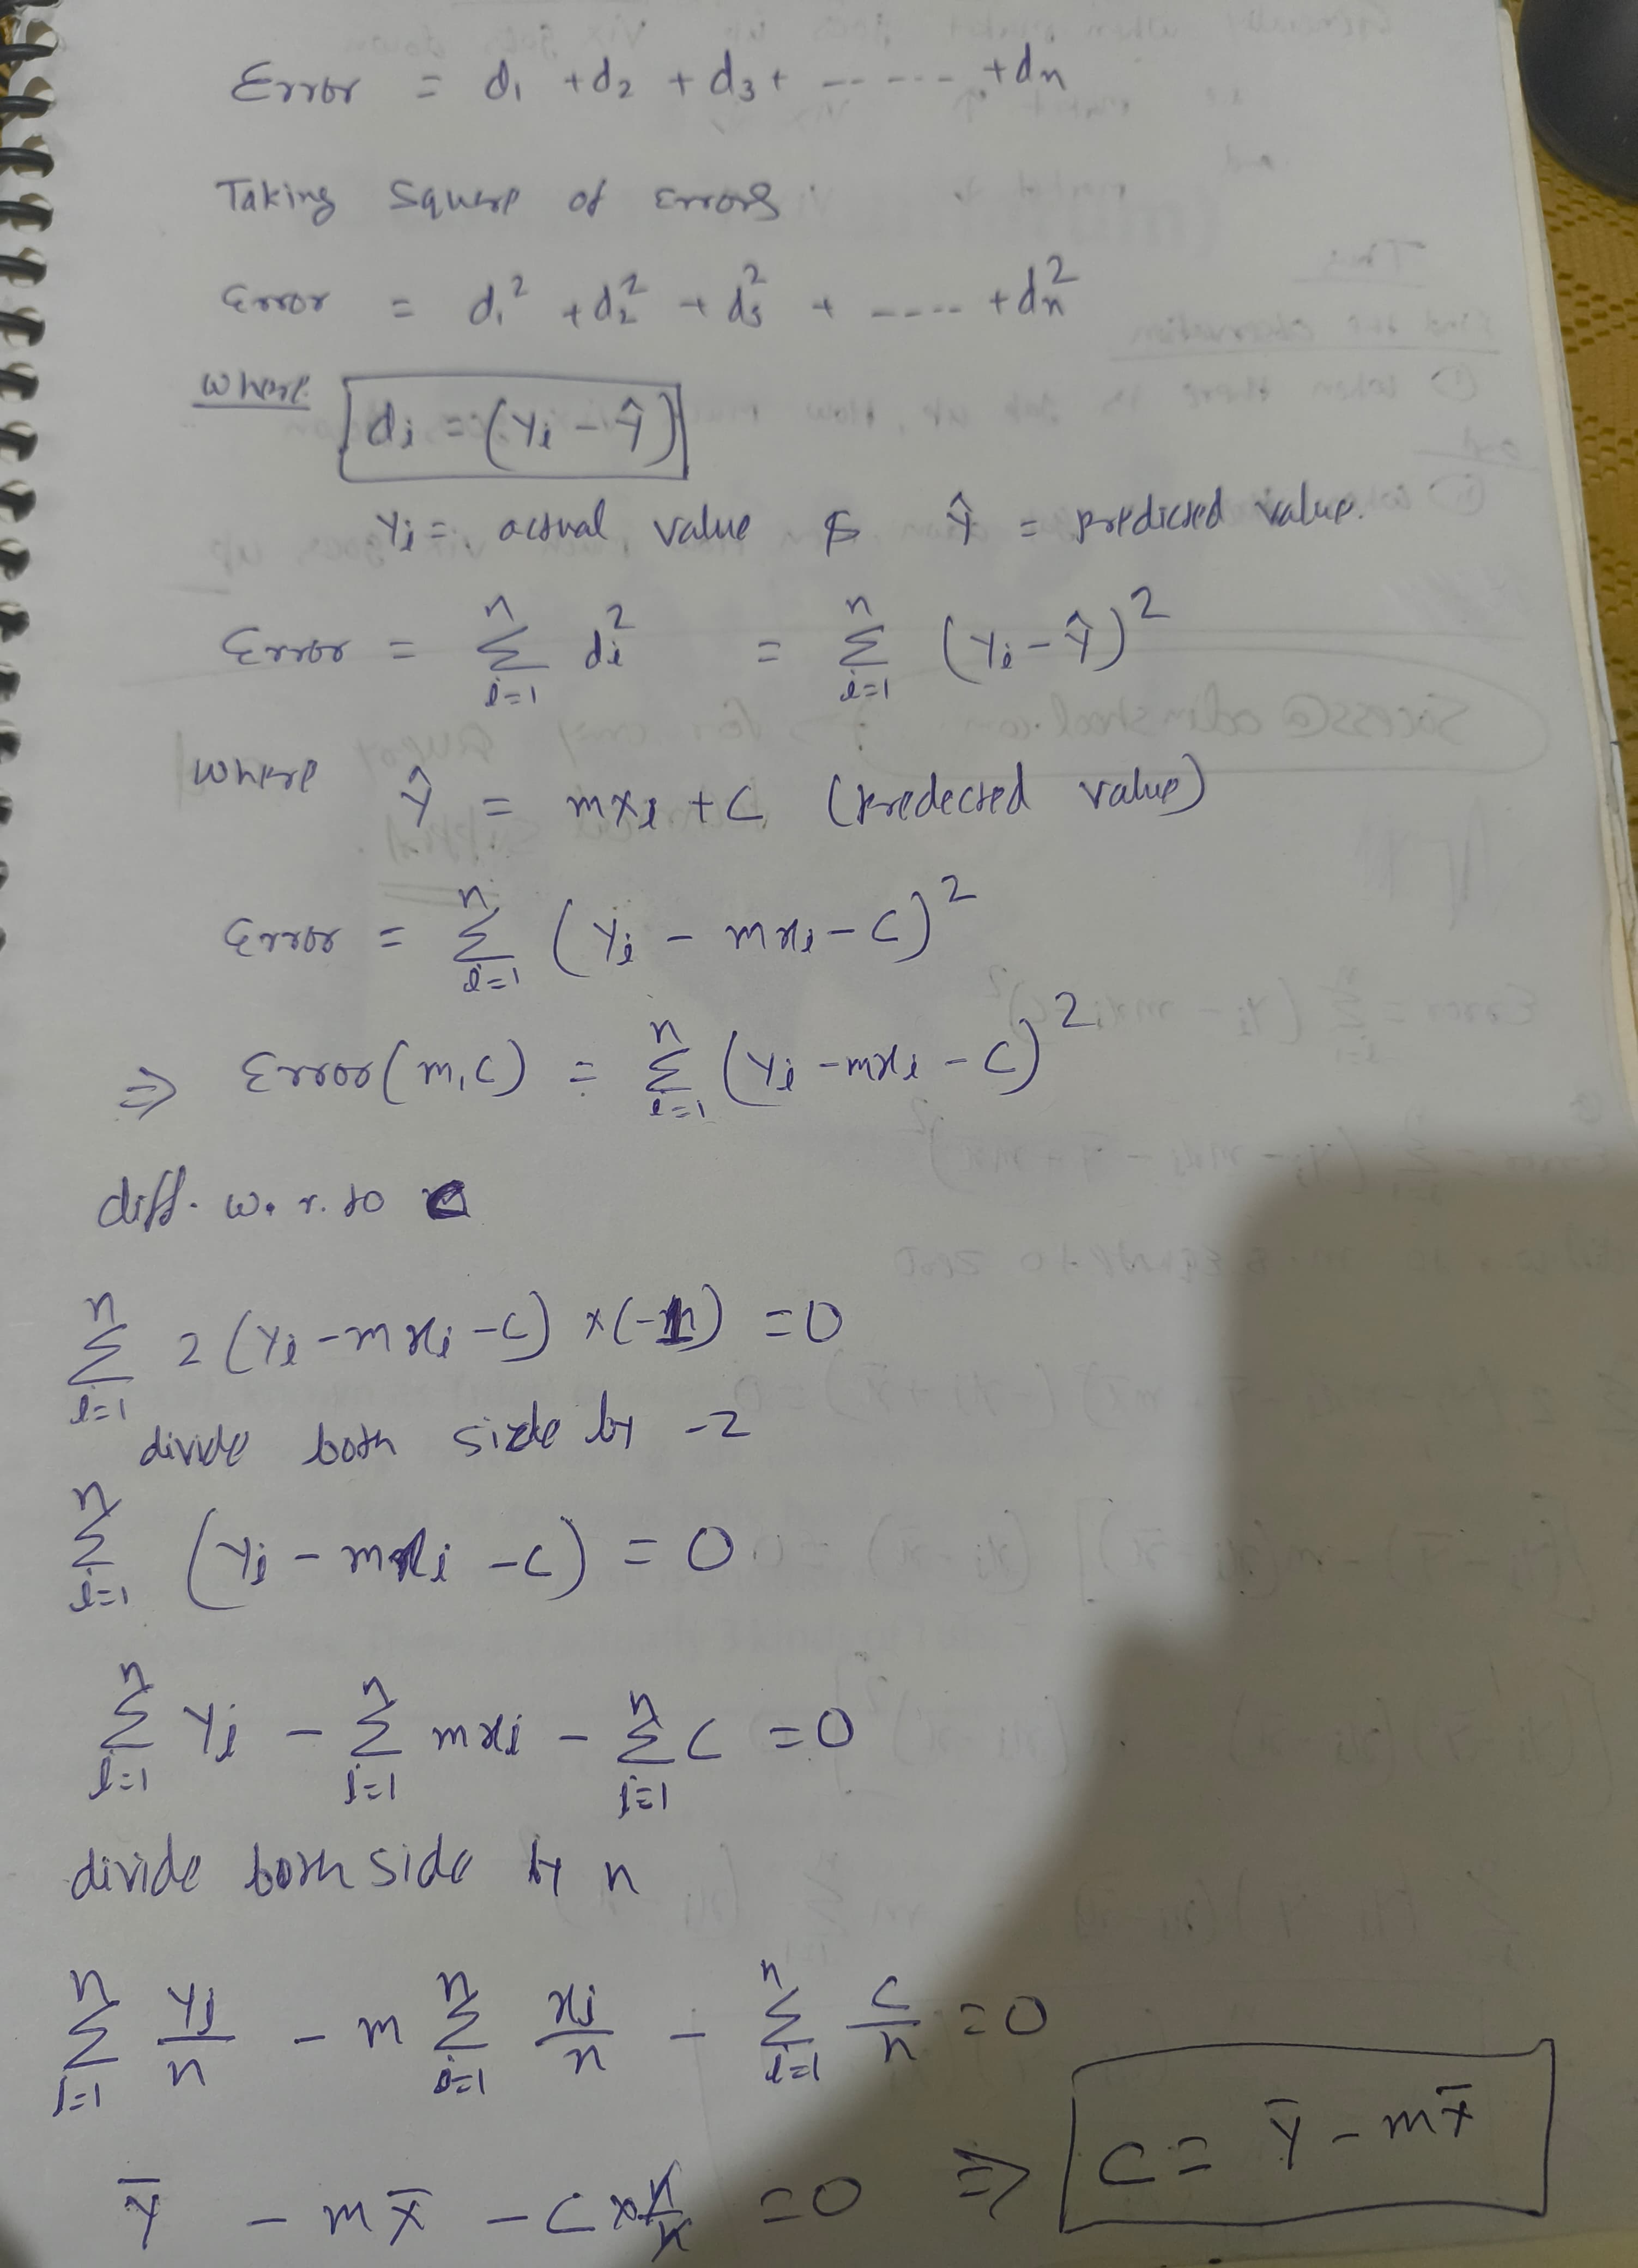 Error = d₁ + d₂ + d₃ + ------ + dn
Taking Square of Errors
Error = d₁² + d₂² + d₃² + ---- + dn²
where di = (Yi - Ŷ)
Yi = actual value & Ŷ = Predicted value.
Error = Σ_{i=1}^{n} di² = Σ_{i=1}^{n} (Yi - Ŷ)²
where Ŷ = mxi + C (Predected value)
Error = Σ_{i=1}^{n} (Yi - mxi - C)²
⇒ Error(m,C) = Σ_{i=1}^{n} (Yi - mxi - C)²
diff. w. r. to C
Σ_{i=1}^{n} 2(Yi - mxi - C) × (-1) = 0
divide both side by -2
Σ_{i=1}^{n} (Yi - mxi - C) = 0
Σ_{i=1}^{n} Yi - Σ_{i=1}^{n} mxi - Σ_{i=1}^{n} C = 0
divide both side by n
Σ_{i=1}^{n} Yi/n - m Σ_{i=1}^{n} xi/n - Σ_{i=1}^{n} C/n = 0
Ȳ - mX̄ - C × n/n = 0 ⇒ C = Ȳ - mX̄